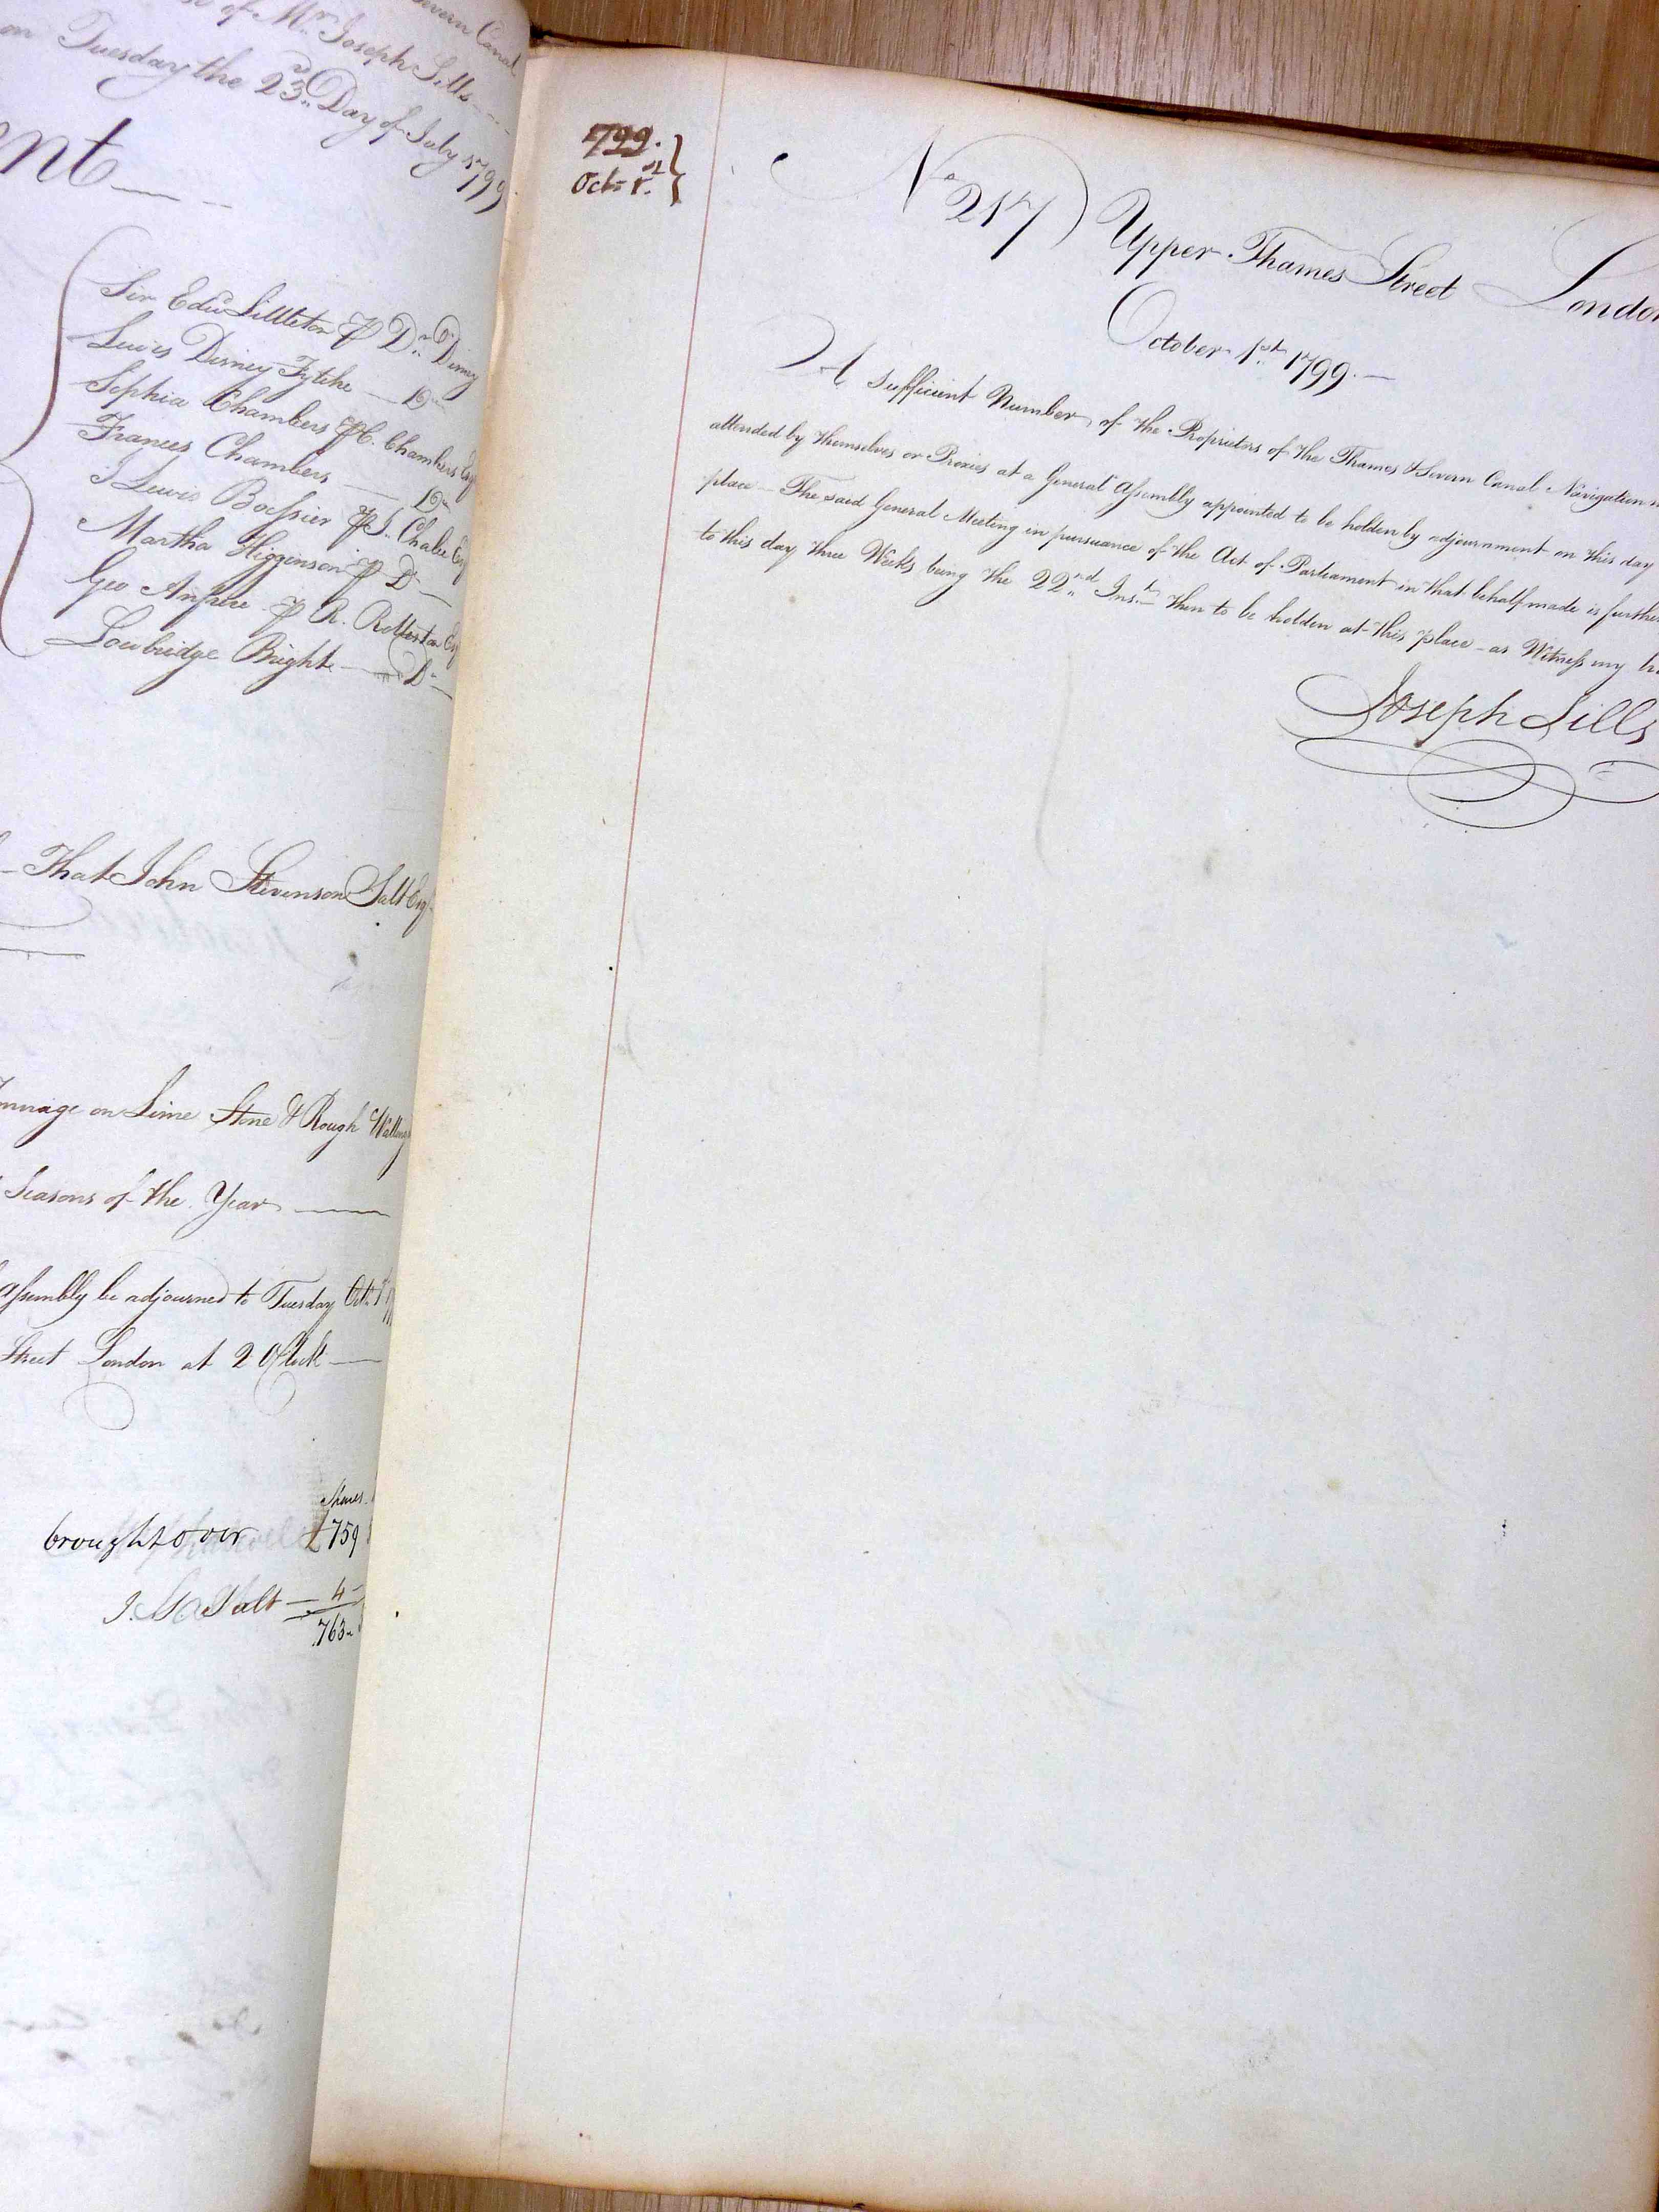 Severn Canal
of Mr. Joseph Sills
on Tuesday the 23d. Day of July 1799
ent
Sir Edwd Littleton pp Dr. Disney
Lewis Disney Fytche — Do
Sophia Chambers pp C. Chambers Esqr
Frances Chambers — Do
J Lewis Boissier pp J. Chalie Esqr
Martha Higginson pp Do
Geo pp R. Esqr
Lowbridge Bright — Do
— That John Stevenson Salt Esqr
on Lime Stone & Rough Walling
Seasons of the Year
Assembly be adjourned to Tuesday Octr. 1st
Street London at 2 OClock
Shares
brought over 759
J. S. Salt — 4
763
1799.
Octr. 1st.
No 217 Upper Thames Street London
October 1st. 1799.
A sufficient Number of the Proprietors of the Thames & Severn Canal Navigation
attended by themselves or Proxies at a General Assembly appointed to be holden by adjournment on this day
place — The said General Meeting in pursuance of the Act of Parliament in that behalf made is further
to this day three Weeks being the 22nd. Inst. then to be holden at this place — as Witness my
Joseph Sills